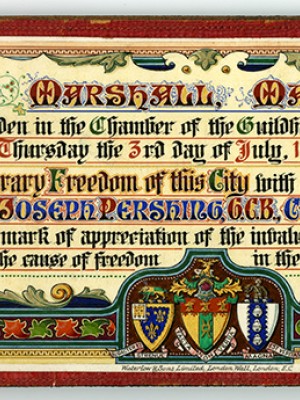 MARSHALL, MA
den in the Chamber of the Guildh
Thursday the 3rd day of July, 1
rary Freedom of this City with
JOSEPH PERSHING, G.C.B., C
mark of appreciation of the inval
the cause of freedom in the
Waterlow & Sons Limited, London Wall, London, E.C.